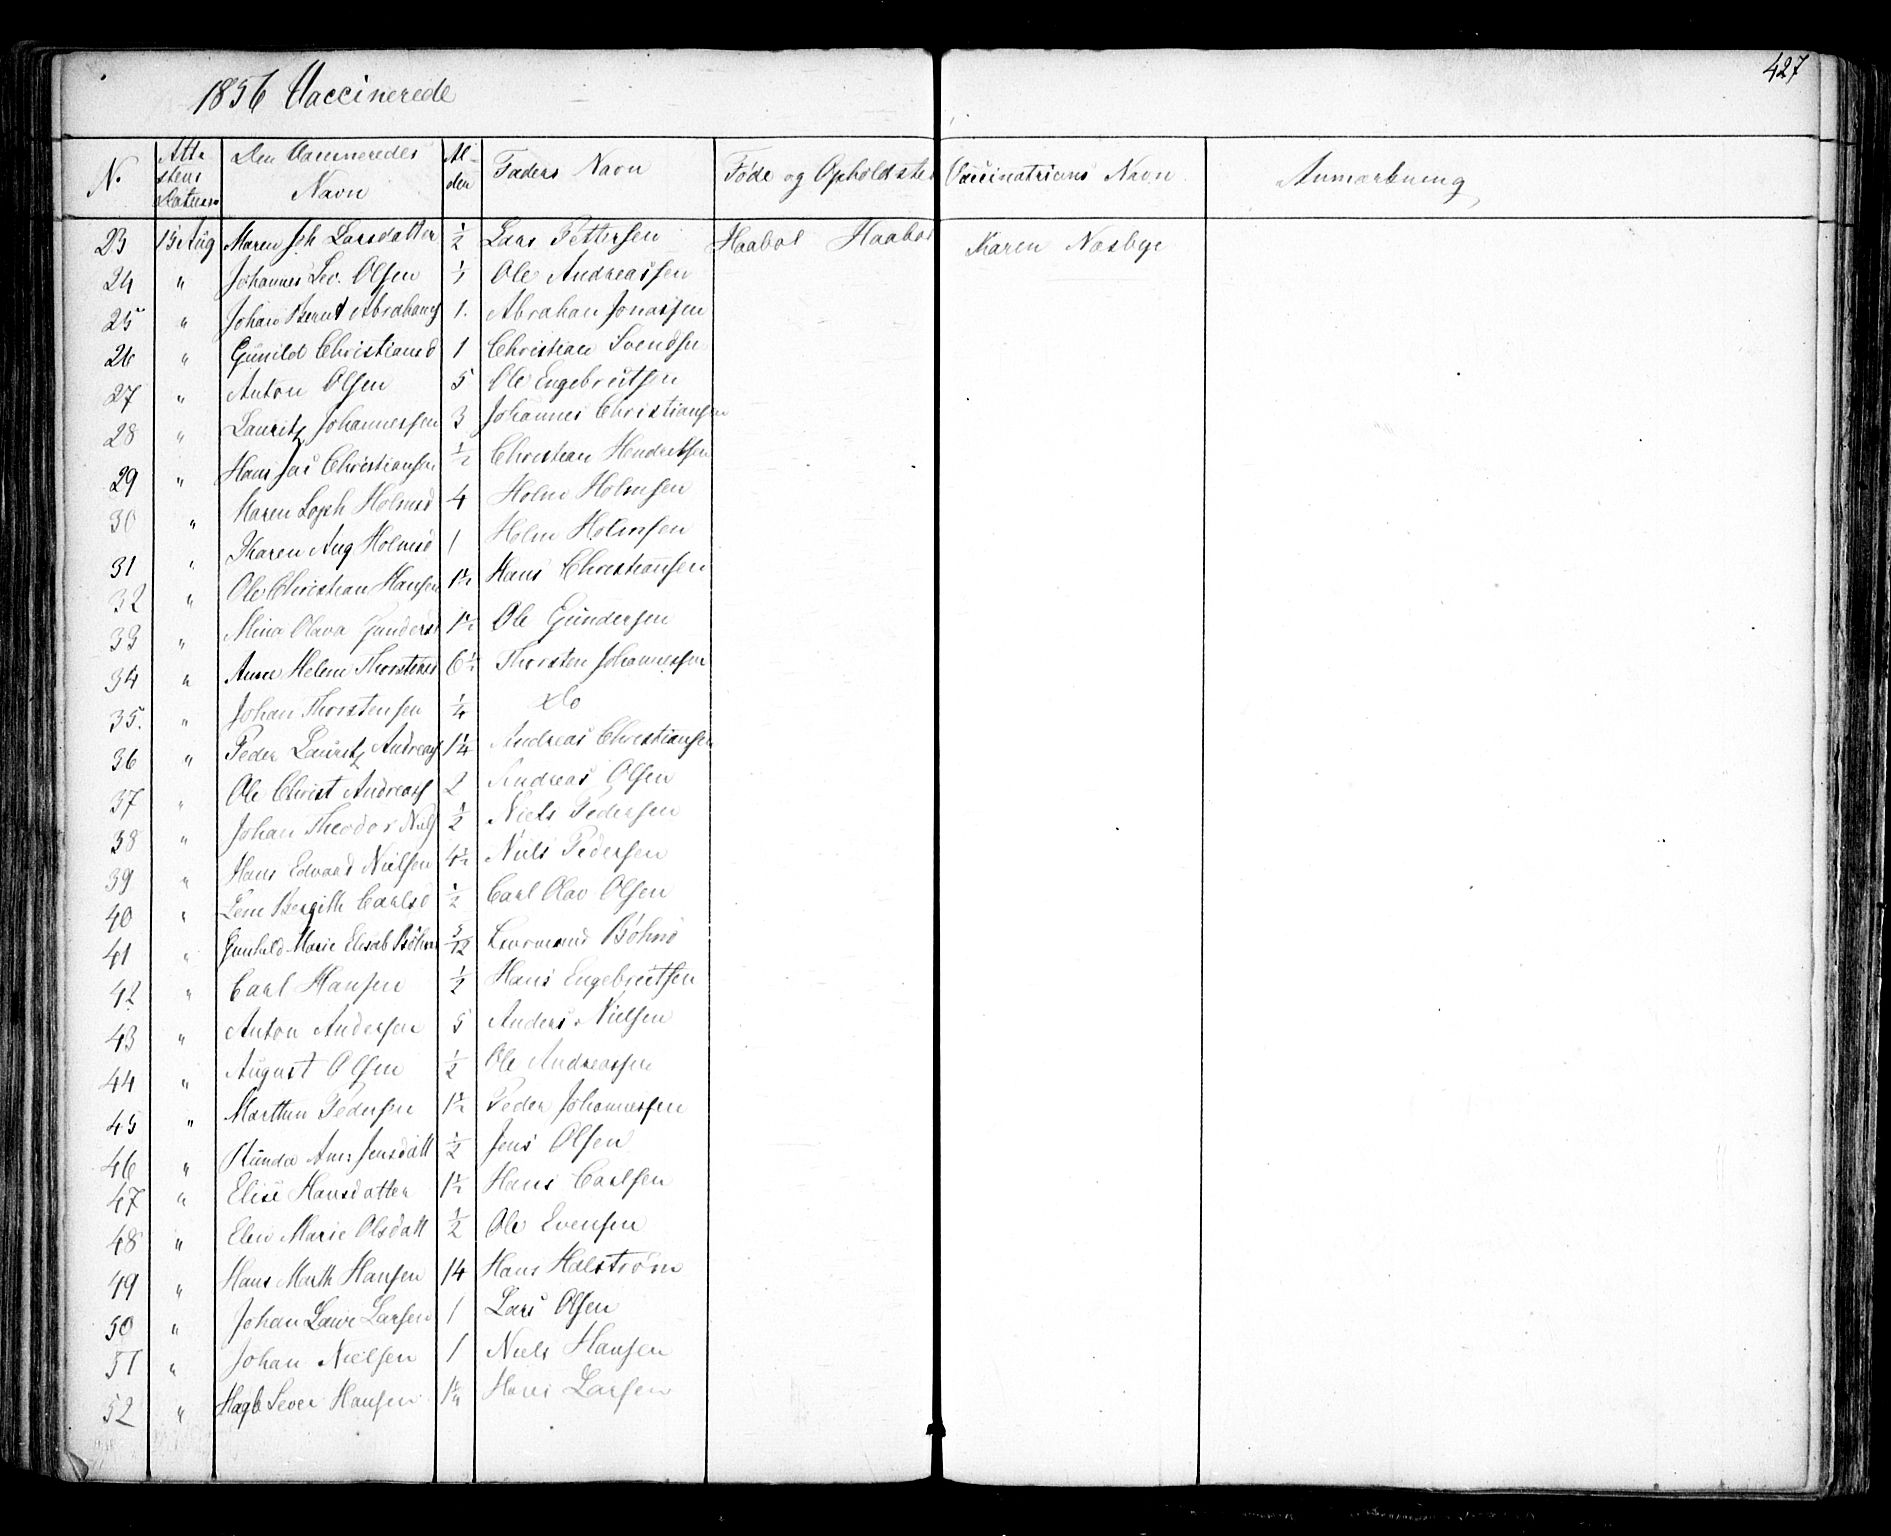 427
1856 Vaccinerede
N. Atte stens Datum Den Vaccineredes Navn Al- der Faders Navn Føde og Opholdsted Vaccinatricens Navn Anmærkning
23 15 Aug Maren Joh Larsdatter 1/2 Lars Pettersen Haabøl Haabøl Maren Næsbye
24 " Johannes Sev. Olsen Ole Andreassen
25 " Johan Bernt Abrahams 1. Abraham Jonassen
26 " Gunild Christiansd 1 Christian Svendsen
27 " Anton Olsen 5 Ole Engebretsen
28 " Lauritz Johannessen 3 Johannes Christiansen
29 " Hans Jac Christiansen 1/2 Christian Hendretsen
30 " Maren Soph Holmsd 4 Holm Holmsen
31 " Karen Aug Holmsd 1 Holm Holmsen
32 " Ole Christian Hansen 1 1/2 Hans Christiansen
33 " Mina Olava Gundersd 1 1/2 Ole Gundersen
34 " Anne Helene Thorstensd 6 1/2 Thorsten Johannessen
35. " Johan Thorstensen 1/4 do
36 " Peder Lauritz Andreas 1 1/4 Andreas Christiansen
37 " Ole Christ Andreass 2 Andreas Olsen
38 " Johan Theodor Niels 1/2 Niels Pedersen
39 " Hans Edvard Nielsen 4 1/2 Niels Pedersen
40 " Lene Bergith Carlsd 1/2 Carl Olav Olsen
41 " Gunhild Marie Elisab Bøhm 5/12 Bøhm
42 " Carl Hansen 1/2 Hans Engebretsen
43 " Anton Andersen 5 Anders Nielsen
44 " August Olsen 1/2 Ole Andreassen
45 " Marthin Pedersen 1 1/2 Peder Johannessen
46 " Jensdatt 1/2 Jens Olsen
47 " Elise Hansdatter 1 1/2 Hans Carlsen
48 " Elen Marie Olsdatt 1/2 Ole Evensen
49 " Hans Marth Hansen 14 Hans Halstrøm
50 " Johan Larsen 1 Lars Olsen
51 " Johan Nielsen 1 Niels Hansen
52 " Sever Hansen Hans Larsen